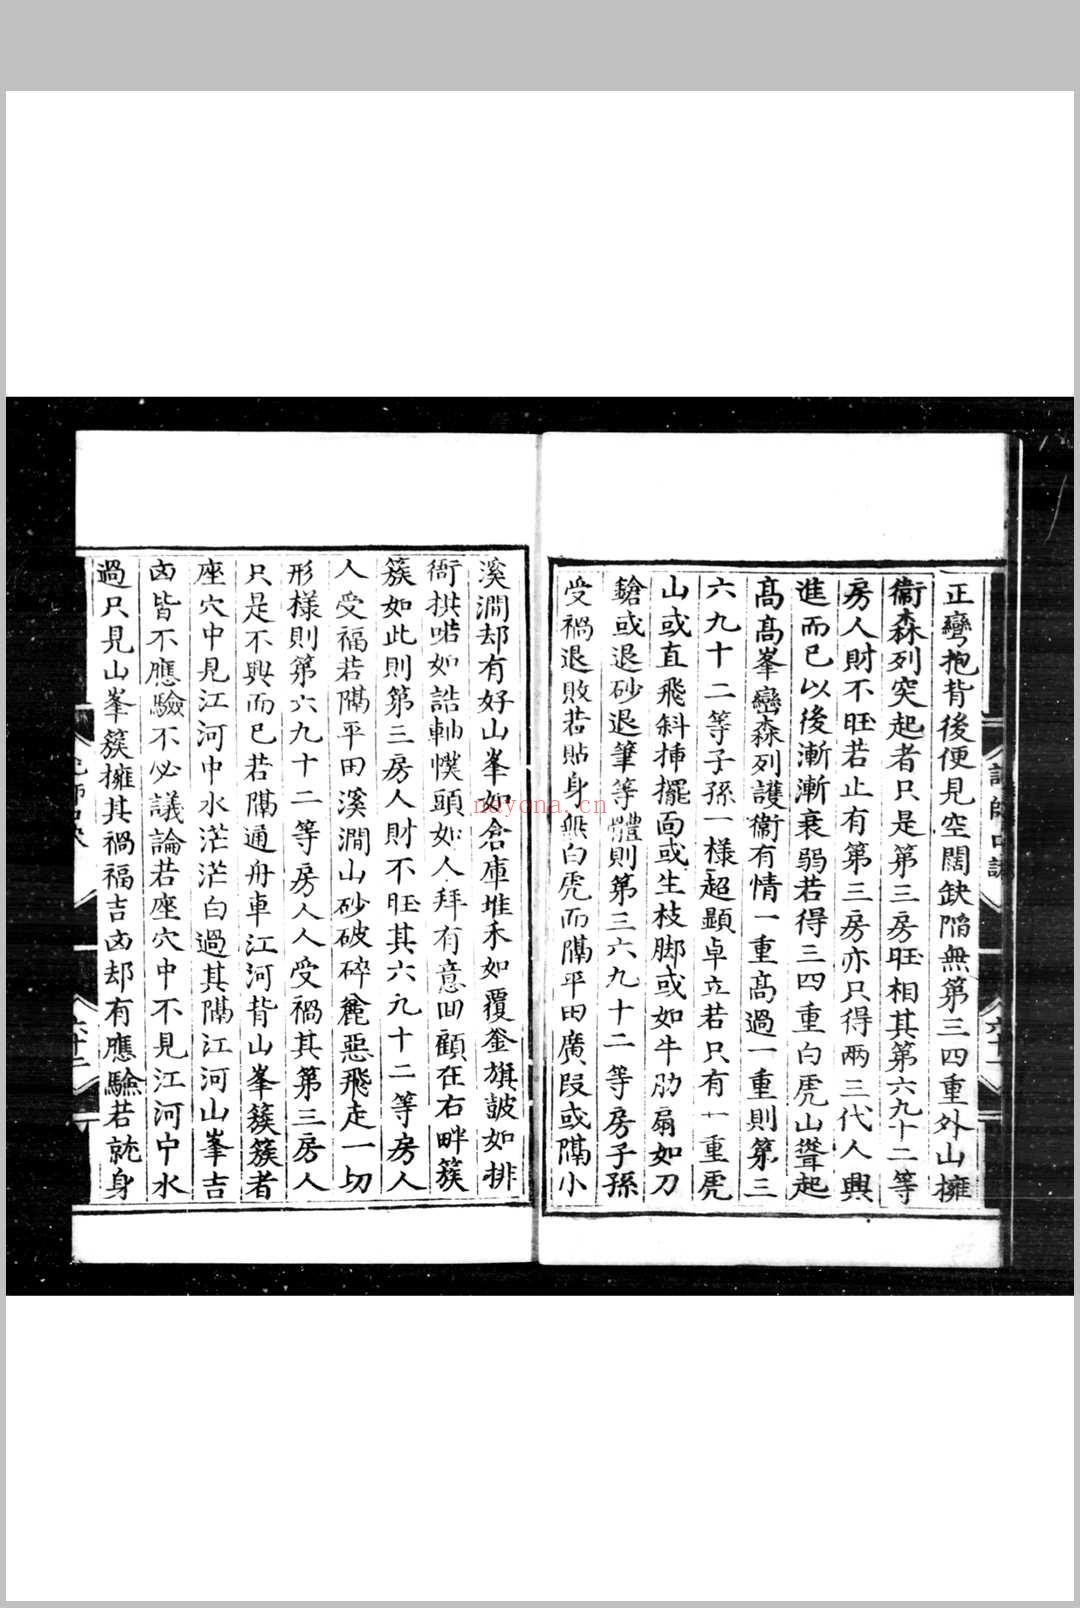 正彎抱背後便見空闊缺陷無第三四重外山擁
衞森列突起者只是第三房旺相其第六九十二等
房人財不旺若止有第三房亦只得兩三代人興
進而已以後漸漸衰弱若得三四重白虎山聳起
髙髙峯巒森列護衞有情一重髙過一重則第三
六九十二等子孫一様超顯卓立若只有一重虎
山或直飛斜揷擺面或生枝脚或如牛肋扇如刀
鎗或退砂退筆等體則第三六九十二等房子孫
受禍退敗若貼身無白虎而隔平田廣叚或隔小
溪澗却有好山峯如倉庫堆禾如覆釜旗皷如排
衙拱喏如誥軸幞頭如人拜有意囬顧在右畔簇
簇如此則第三房人財不旺其六九十二等房人
人受福若隔平田溪澗山砂破碎麄惡飛走一切
形様則第六九十二等房人人受禍其第三房人
只是不興而已若隔通舟車江河背山峯簇簇者
座穴中見江河中水茫茫白過其隔江河山峯吉
凶皆不應驗不必議論若座穴中不見江河中水
過只見山峯簇擁其禍福吉凶却有應驗若就身
六十一
六十二
nayona.cn